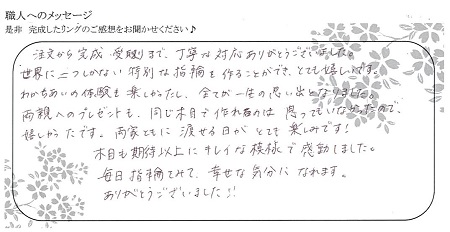 職人へのメッセージ
是非 完成したリングのご感想をお聞かせください♪
注文から完成・受取りまで、丁寧な対応ありがとうございました。
世界に二つしかない特別な指輪を作ることができ、とても嬉しいです。
わかちあいの体験も楽しかったし、全てが一生の思い出となりました。
両親へのプレゼントも、同じ木目で作れるのは思っていなかったので、
嬉しかったです。両家ともに渡せる日がとても楽しみです!
木目も期待以上にキレイな模様で感動しました。
毎日指輪をみて、幸せな気分になれます。
ありがとうございました!!